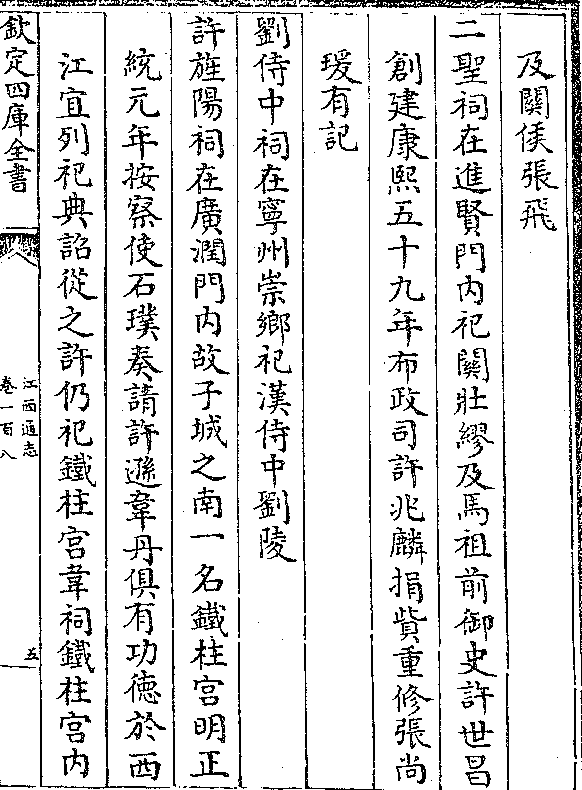 及關侯張飛
二聖祠在進賢門內祀關壯繆及馬祖前御史許世昌
創建康熙五十九年布政司許兆麟捐貲重修張尚
瑗有記
劉侍中祠在寧州崇鄉祀漢侍中劉陵
許旌陽祠在廣潤門内故子城之南一名鐵柱宫明正
統元年按察使石璞奏請許遜韋丹俱有功德於西
江宜列祀典詔從之許仍祀鐵柱宫韋祠鐵柱宫内
欽定四庫全書
江西通志
卷一百八
五